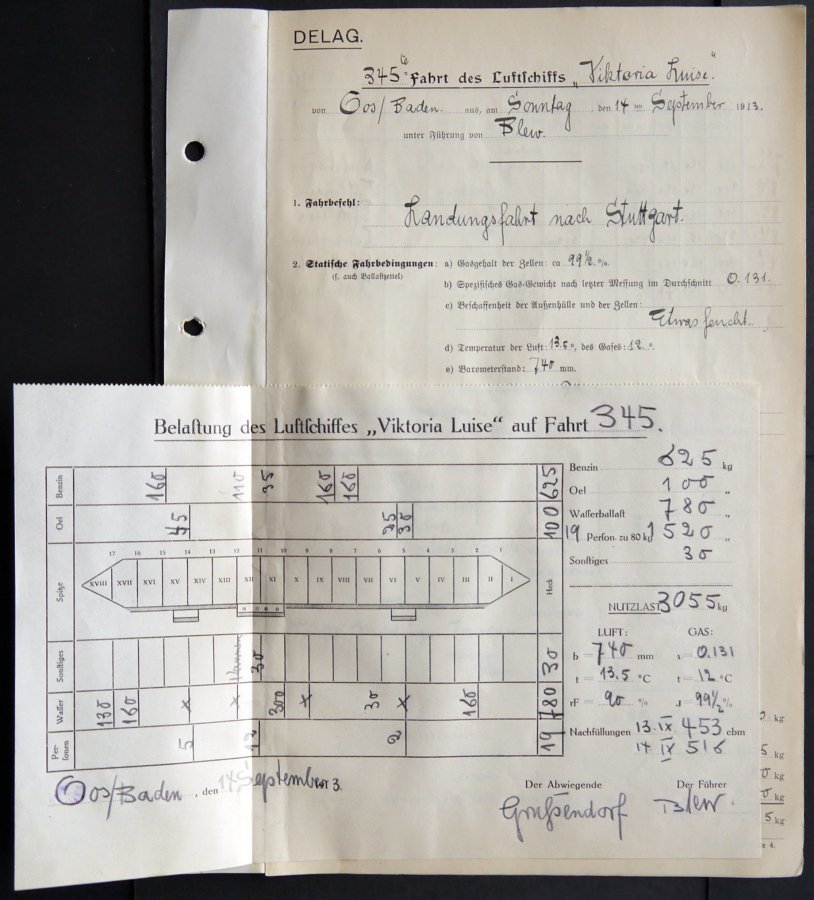 DELAG.
345te Fahrt des Luftschiffs „Viktoria Luise.“
von Oos/Baden. aus, am Sonntag, den 14ten September 1913.
unter Führung von Blew.
1. Fahrbefehl: Landungsfahrt nach Stuttgart.
2. Statische Fahrbedingungen: a) Gasgehalt der Zellen: ca. 99½ %.
(s. auch Ballastzettel)
b) Spezifisches Gas-Gewicht nach letzter Messung im Durchschnitt 0.131
c) Beschaffenheit der Außenhülle und der Zellen:
Etwas feucht.
d) Temperatur der Luft: 13.5°, des Gases: 12.°.
e) Barometerstand: 740 mm.
Belastung des Luftschiffes „Viktoria Luise“ auf Fahrt 345.
Benzin 160 110 35 160 160 625
Oel 45 25 30 100
Spitze
17 16 15 14 13 12 11 10 9 8 7 6 5 4 3 2 1
XVIII XVII XVI XV XIV XIII XII XI X IX VIII VII VI V IV III II I
Heck
Sonstiges 30 30
Wasser 130 160 x x 300 x 30 x 160 780
Personen 5 12 2 19
Benzin 625 kg
Oel 100 „
Wasserballast 780 „
19 Person. zu 80 kg 1520 „
Sonstiges 30
NUTZLAST 3055 kg
LUFT: GAS:
b = 740 mm s = 0.131
t = 13.5 °C t = 12 °C
rF = 90 % J = 99½ %
Nachfüllungen 13. IX. 453 cbm
14 IX 516
Oos/Baden, den 14 September 3.
Der Abwiegende Der Führer
Grußendorf Blew.
kg
5 kg
0 kg
0 kg
5 kg
4.